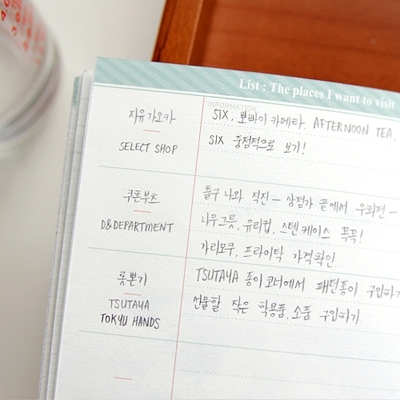 List : The places I want to visit
INFORMATION
지유가오카
SELECT SHOP
SIX, 뽀빠이 카메라. AFTERNOON TEA.
SIX 중점적으로 보기!
쿠혼부츠
D&DEPARTMENT
출구 나와 직진 - 상점가 끝에서 우회전 -
나무그릇, 유리컵, 스텐 케이스 꼭꼭!
가리모쿠, 프라이탁 가격확인
롯뽄기
TSUTAYA
TOKYU HANDS
TSUTAYA 종이코너에서 패턴종이 구입하기
선물할 작은 학용품, 소품 구입하기